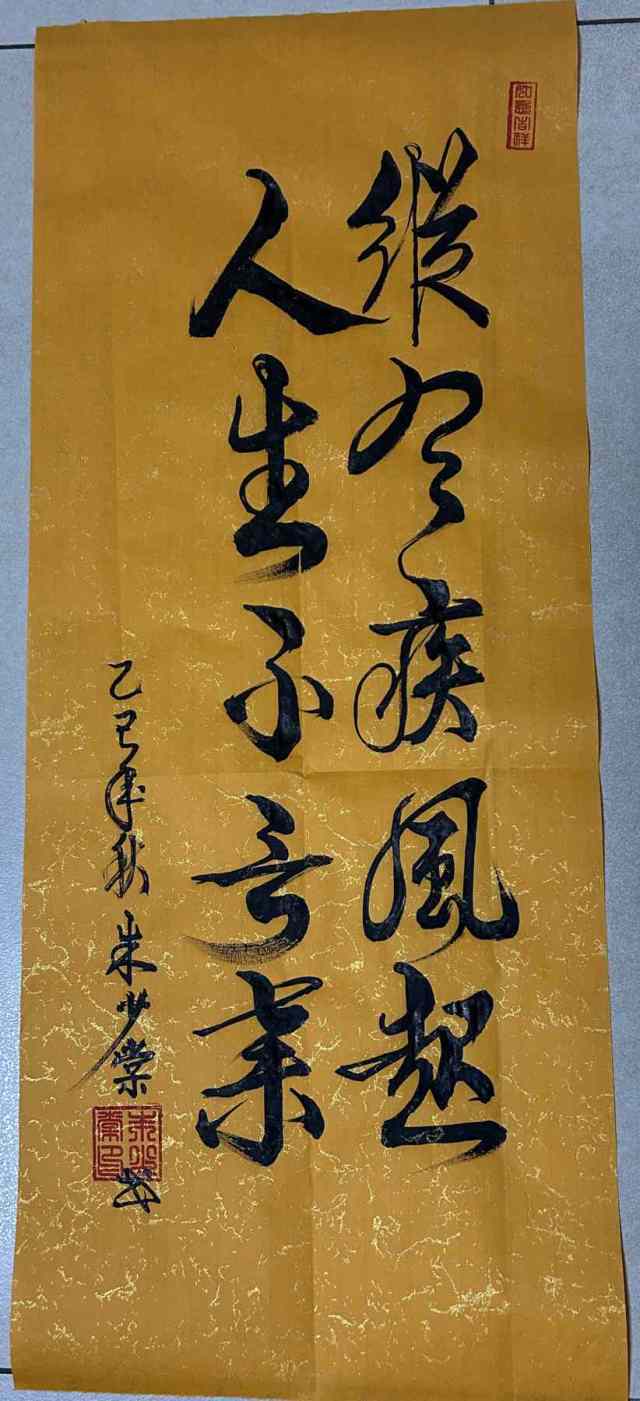 如意吉祥
縱有疾風起
人生不言棄
乙巳年秋朱少棠书
朱少棠印